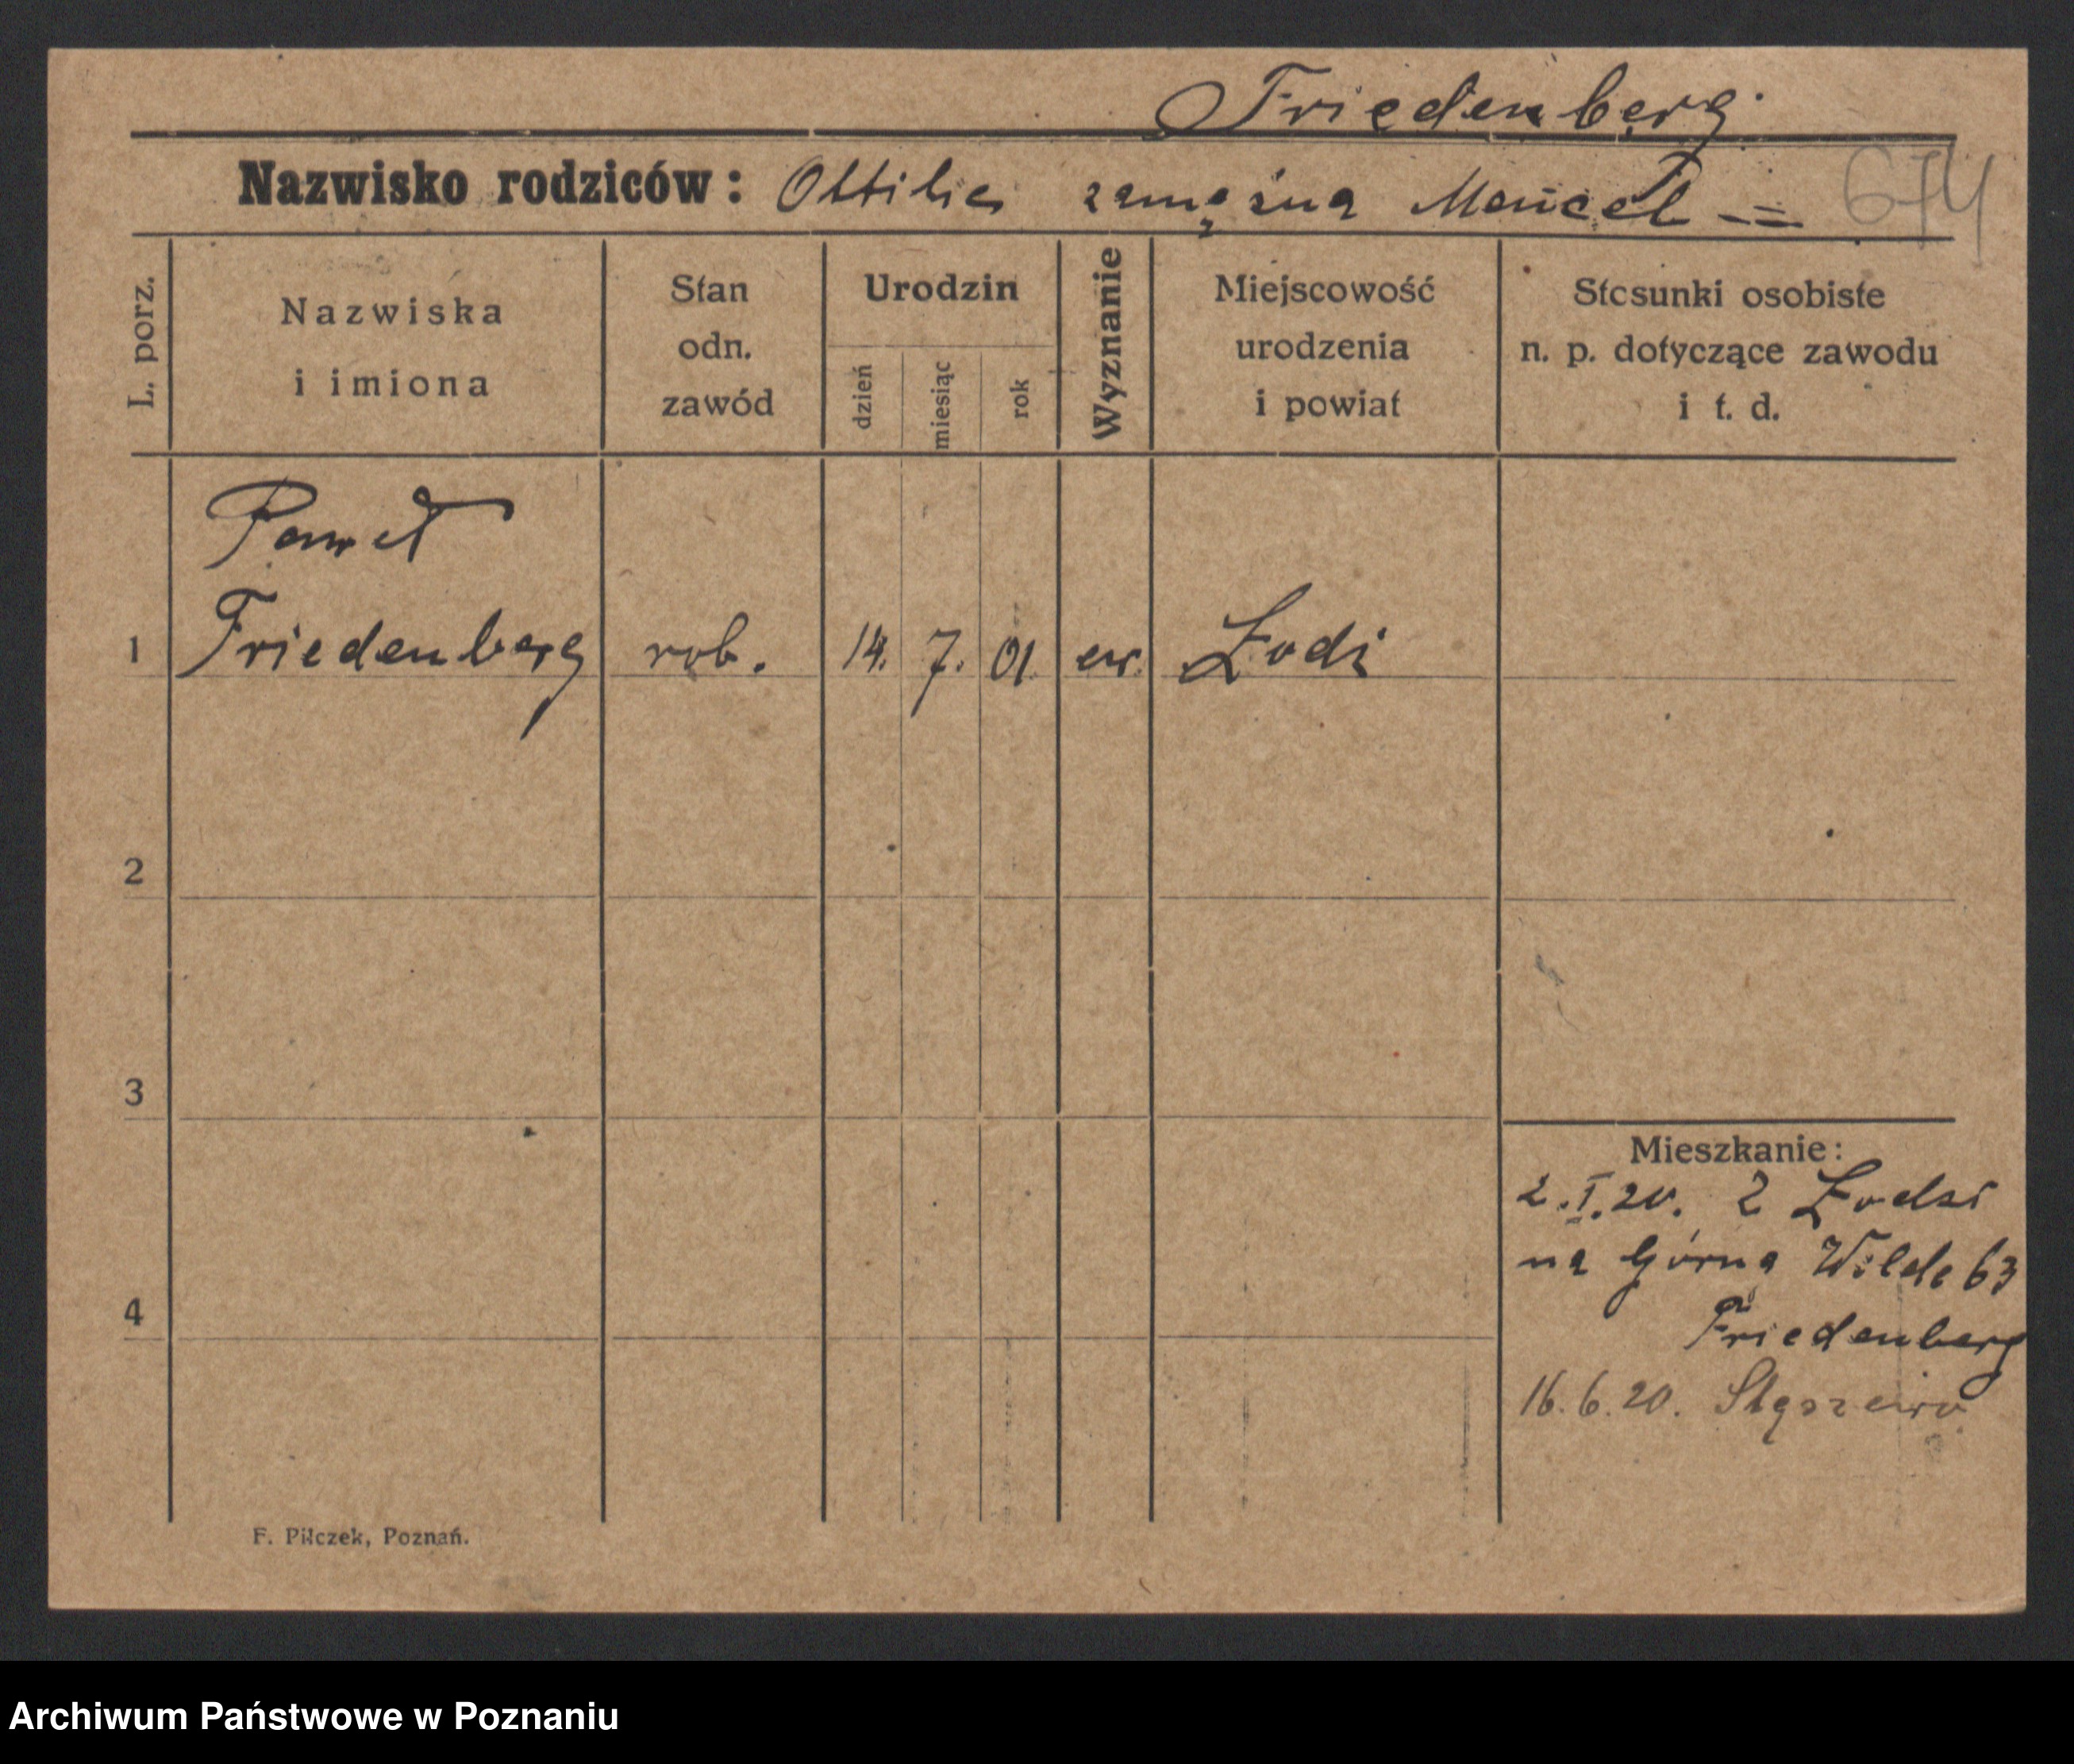 Friedenberg
Nazwisko rodziców: Ottilie zamężna Mencel
674
L. porz.
Nazwiska
i imiona
Stan
odn.
zawód
Urodzin
dzień
miesiąc
rok
Wyznanie
Miejscowość
urodzenia
i powiat
Stosunki osobiste
n. p. dotyczące zawodu
i t. d.
Paweł
1 Friedenberg rob. 14. 7. 01. ew. Łodź
2
3
Mieszkanie:
2.I.20. z Łodzi
na Górna Wilde 63
4
Friedenberg
16.6.20. Stęszewo
F. Pilczek, Poznań.
Archiwum Państwowe w Poznaniu